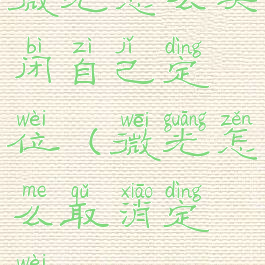 微光怎么关
bì zì jǐ dìng
闭自己定
wèi wēi guāng zěn
位（微光怎
me qǔ xiāo dìng
么取消定
wèi